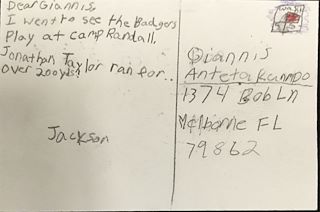 Dear Giannis,
I went to see the Badgers
Play at camp Randall.
Jonathan Taylor ran for..
over 200yds!
Jackson
Giannis
Antetokounmpo
1374 Bob Ln
Melborne FL
79862